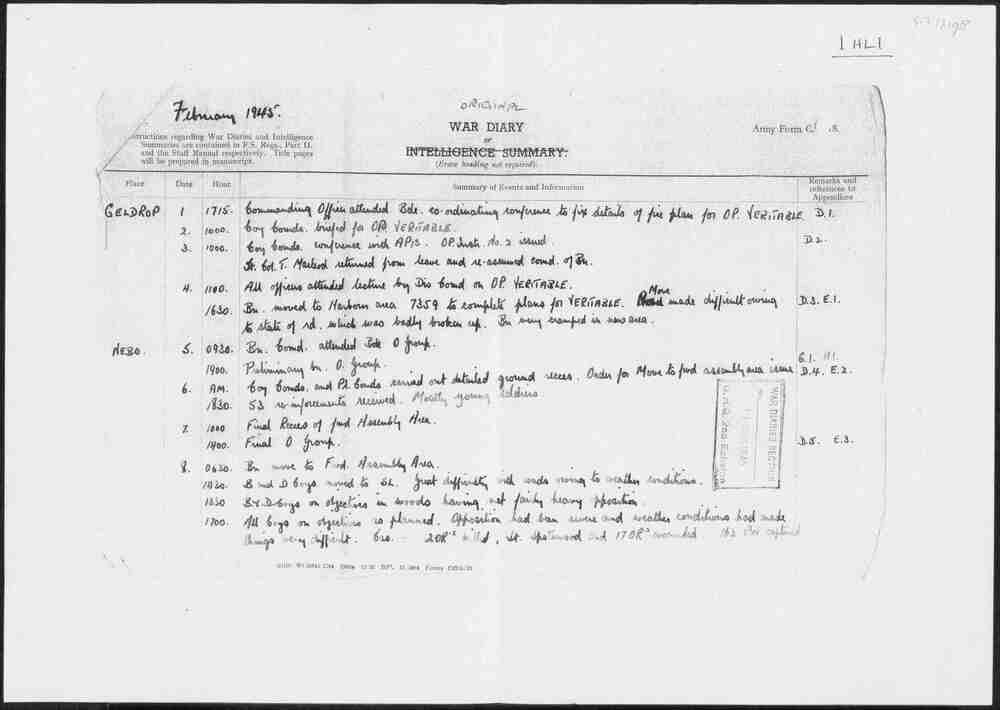 1 HLI
February 1945.
ORIGINAL
WAR DIARY
or
INTELLIGENCE SUMMARY.
(Erase heading not required).
Army Form C. 18.
structions regarding War Diaries and Intelligence
Summaries are contained in F.S. Regs., Part II.
and the Staff Manual respectively. Title pages
will be prepared in manuscript.
Place Date Hour Summary of Events and Information Remarks and references to Appendices
GELDROP 1 1715. Commanding Officer attended Bde. co-ordinating conference to fix details of fire plan for OP. VERITABLE. D.1.
2. 1000. Coy Comds. briefed for OP. VERITABLE.
3. 1000. Coy Comds. conference with APIS. OP. Instr. No. 2 issued. D.2.
Lt. Col. T. Macleod returned from leave and re-assumed comd. of Bn.
4. 1100. All officers attended lecture by Div Comd on OP VERITABLE.
1630. Bn. moved to Harbour area 7359 to complete plans for VERITABLE. Move made difficult owing D.3. E.1.
to state of rd. which was badly broken up. Bn very cramped in new area.
NEBO. 5. 0930. Bn. Comd. attended Bde O Group.
1900. Preliminary bn. O. Group. G.1.
6. AM. Coy Comds. and Pl. Comds carried out detailed ground recces. Order for Move to fwd assembly area issued D.4. E.2.
1830. 53 re-inforcements received. Mostly young soldiers
7. 1000 Final Recces of fwd Assembly Area.
1400. Final O Group. D.5. E.3.
8. 0630. Bn move to Fwd. Assembly Area.
B and D Coys moved to SL. Great difficulty with roads owing to weather conditions.
B & D Coys on objectives in woods having met fairly heavy opposition.
1700. All Coys on objectives as planned. Opposition had been severe and weather conditions had made
things very difficult. Cas. - 2 ORs killed, Lt. and 17 ORs wounded 162 captured
WAR DIARIES RECEIVED
G.H.Q. 2nd Echelon